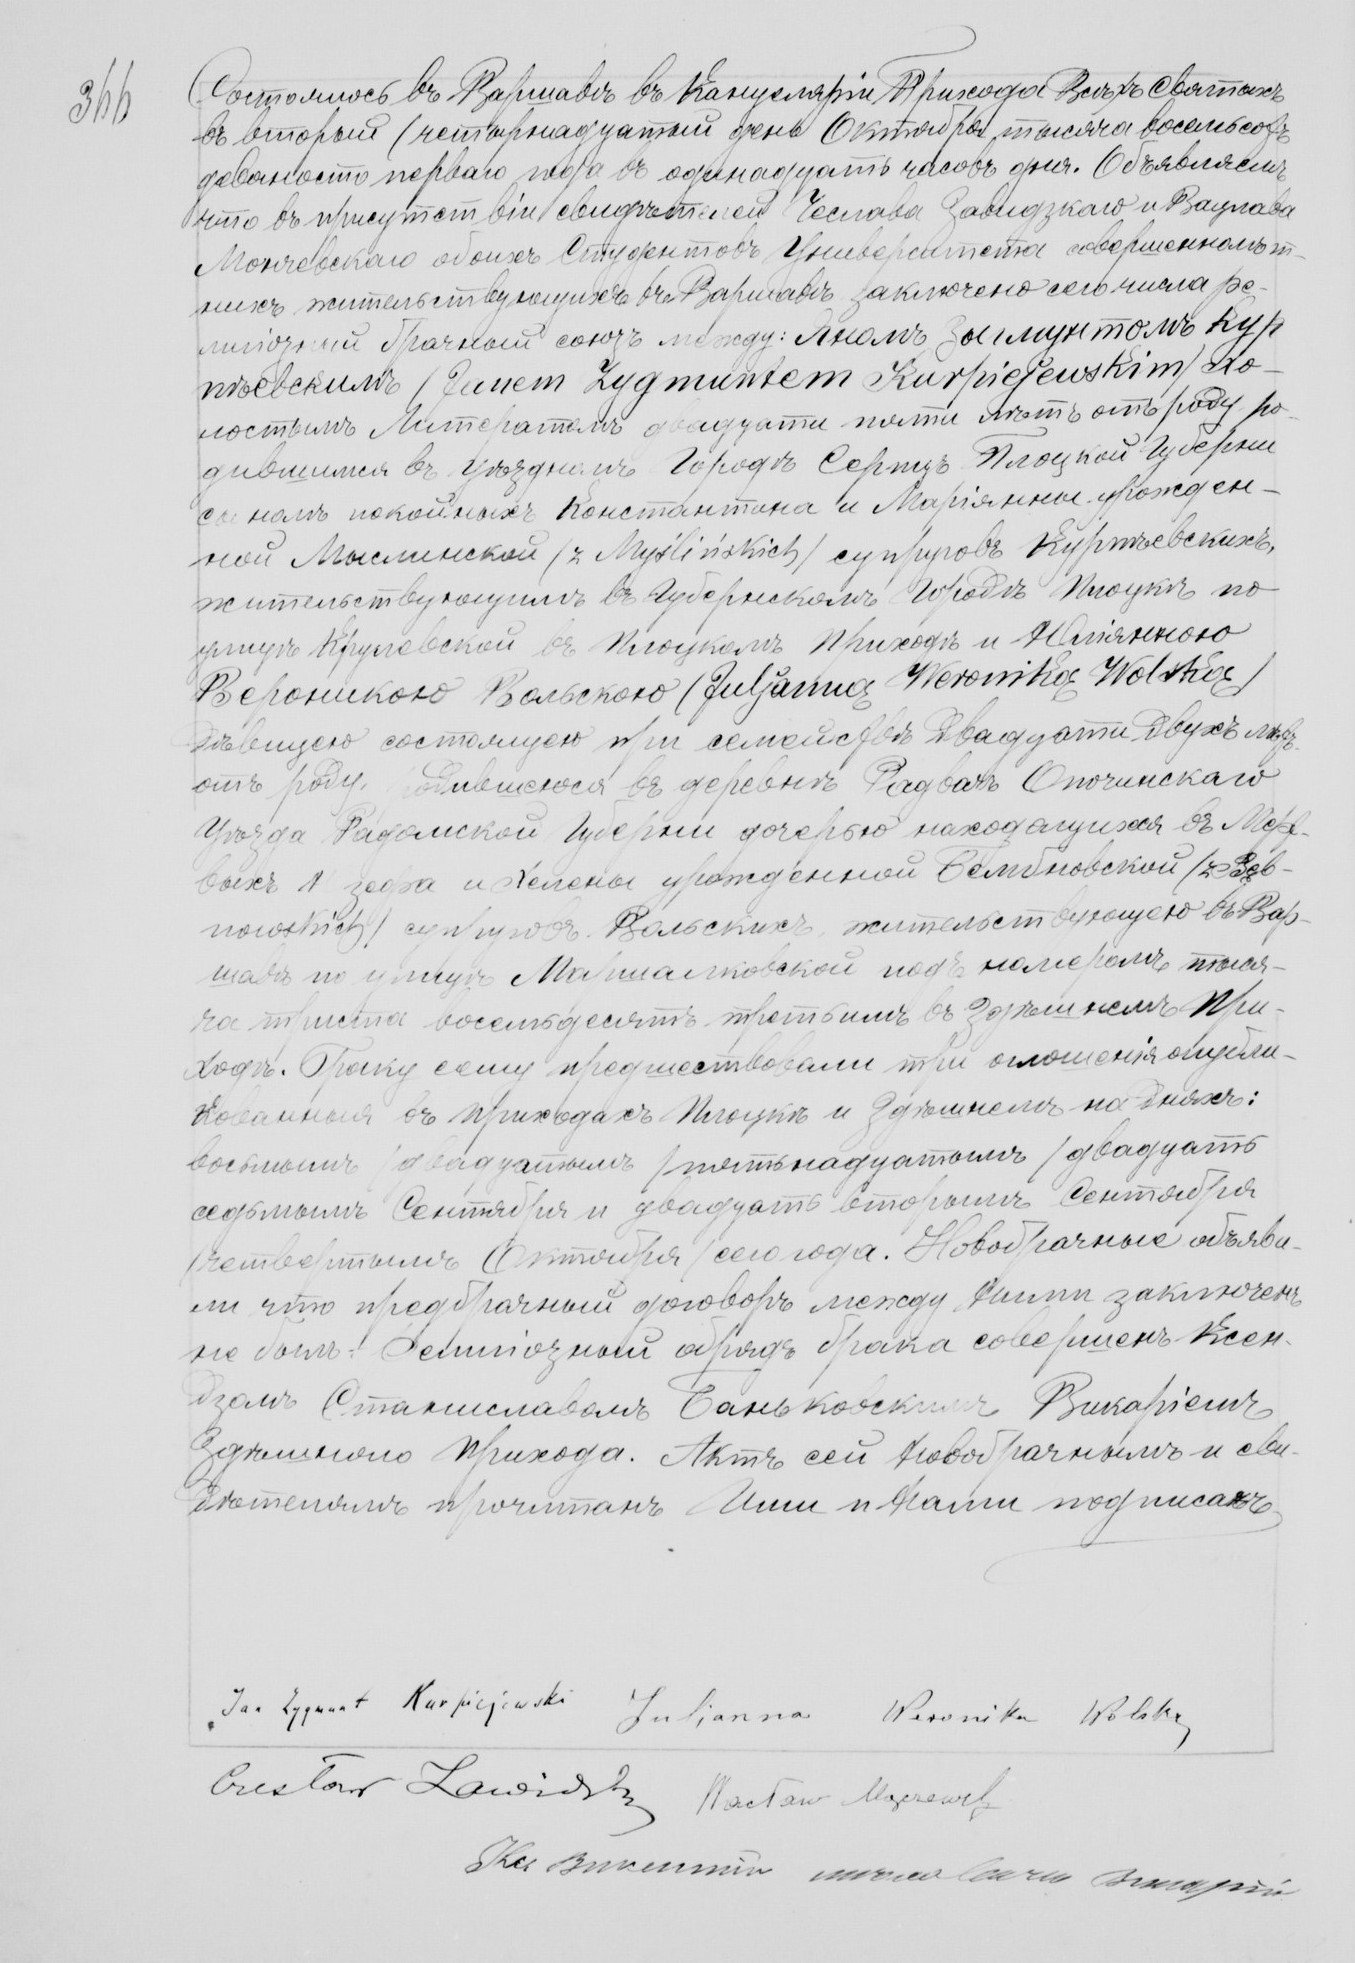 344
Состоялось въ Варшавѣ въ Канцеляріи Прихода Всѣхъ Святыхъ
въ вторый (четырнадцатый день Октября тысяча восемьсотъ
девяносто перваго года въ одинадцать часовъ дня. Объявляемъ
что въ присутствіи свидѣтелей Чеслава Завидзкаго и Вацлава
Мончевскаго обоихъ Студентовъ Университета совершеннолѣт-
нихъ жительствующихъ въ Варшавѣ заключено сего числа ре-
лигіозный брачный союзъ между: Яномъ Зыгмунтомъ Кур
пѣевскимъ (Janem Zygmuntem Kurpiejewskim) хо-
лостымъ Литератомъ двадцати пяти лѣтъ отъ роду ро-
дившимся въ Уѣздномъ Городѣ Серпцѣ Плоцкой Губерніи
сыномъ покойныхъ Константина и Маріянны урожден-
ной Мыслинской (z Myślińskich) супруговъ Курпѣевскихъ,
жительствующимъ въ Губернскомъ Городѣ Плоцкѣ по
улицѣ Крулевской въ Плоцкомъ Приходѣ и Юліянною
Вероникою Вольскою (Juljanną Weroniką Wolską)
дѣвицею состоящею при семействѣ двадцати двухъ лѣтъ
отъ роду, родившеюся въ деревнѣ Радванъ Опочинскаго
Уѣзда Радомской Губерніи дочерью находящихся въ Мерт-
выхъ Юзефа и Хелены урожденной Бембновской (z Бęb-
nowskich) супруговъ Вольскихъ, жительствующею въ Вар-
шавѣ по улицѣ Маршалковской подъ номеромъ тыся-
ча триста восемьдесятъ третьимъ въ Здѣшнемъ При-
ходѣ. Браку сему предшествовали три оглашенія опубли-
кованныя въ приходахъ Плоцкѣ и Здѣшнемъ на дняхъ:
восьмымъ /двадцатымъ /пятьнадцатымъ /двадцать
седьмымъ Сентября и двадцать вторымъ Сентября
/четвертымъ Октября/ сего года. Новобрачные объяви-
ли что предбрачный договоръ между Ними заключенъ
не былъ. Религіозный обрядъ брака совершенъ Ксен-
дзомъ Станиславомъ Баньковскимъ Викаріемъ
Здѣшняго Прихода. Актъ сей Новобрачнымъ и сви-
дѣтелямъ прочитанъ Ими и Нами подписанъ
Jan Zygmunt Kurpiejewski Julianna Weronika Wolska
Czesław Zawidzki Wacław
Кс Викентій Викарій